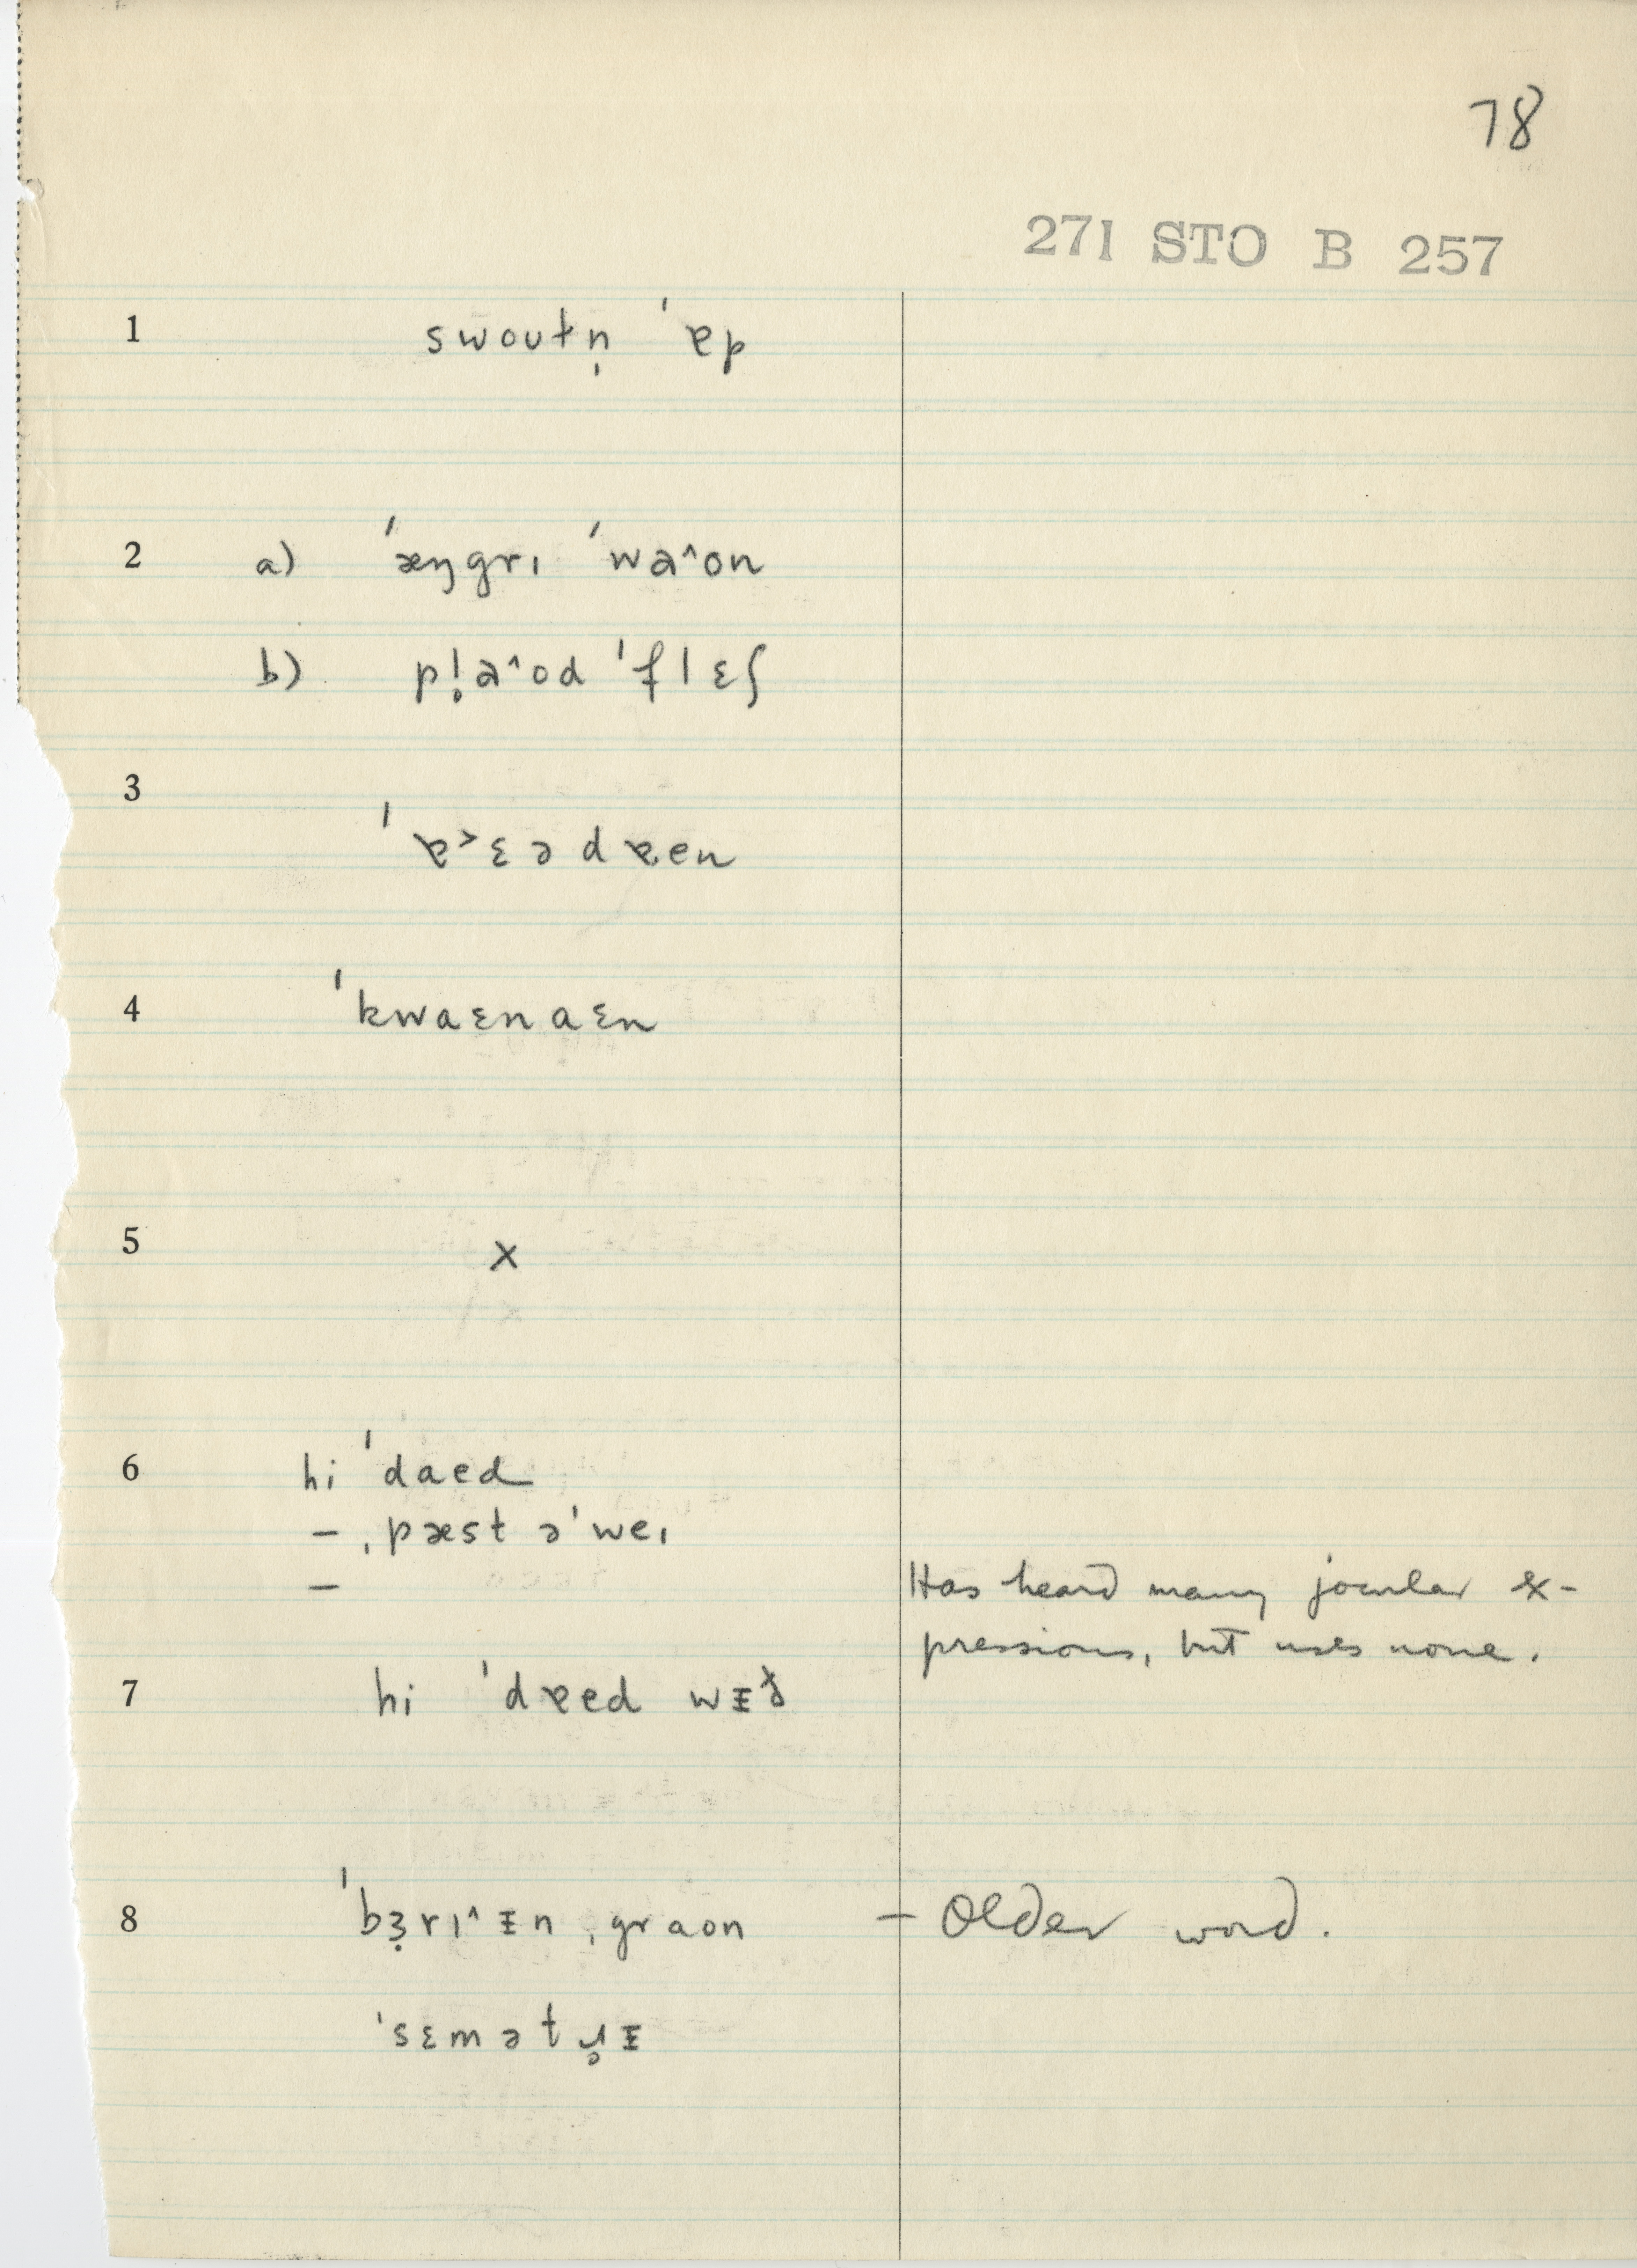 78
271 STO B 257
1 swoʊt̬n̩ ˈɐp
2 a) ˈæŋgrɪ ˈwa^on
b) pl̥a^od ˈflɛʃ
3 ˈɐ˃ɛədɐen
4 ˈkwaɛnaɛn
5 x
6 hi ˈdaed
– ˌpæst əˈweɪ
– Has heard many jocular ex-
pressions, but uses none.
7 hi ˈdɐed wᵻð
8 ˈbɜ̣rɪ^ᵻn ˌgraon – Older word.
ˈsɛmətɹ̥ᵻ